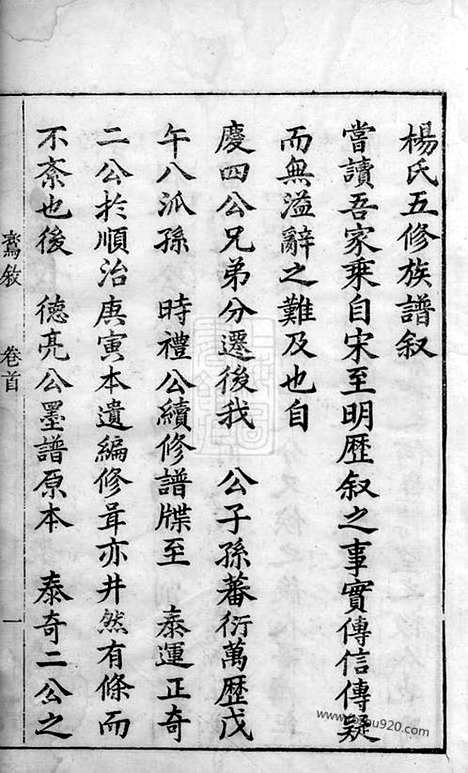 楊氏五修族譜叙
嘗讀吾家乘自宋至明歷叙之事實傳信傳疑
而無溢辭之難及也自
慶四公兄弟分遷後我　公子孫蕃衍萬歷戊
午八派孫　時禮公續修譜牒至　泰運正奇
二公於順治庚寅本遺編修葺亦井然有條而
不紊也後　德亮公墨譜原本　泰奇二公之
舊敘　卷首　一